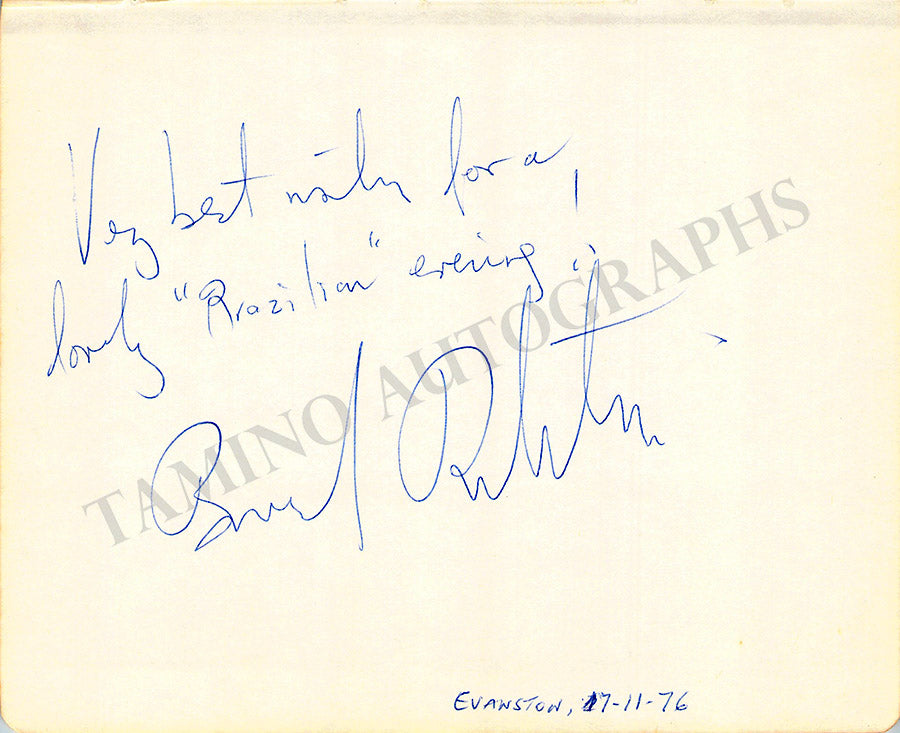 Very best wishes for a
lovely "Brazilian" evening,
TAMINO AUTOGRAPHS
EVANSTON, 17-11-76